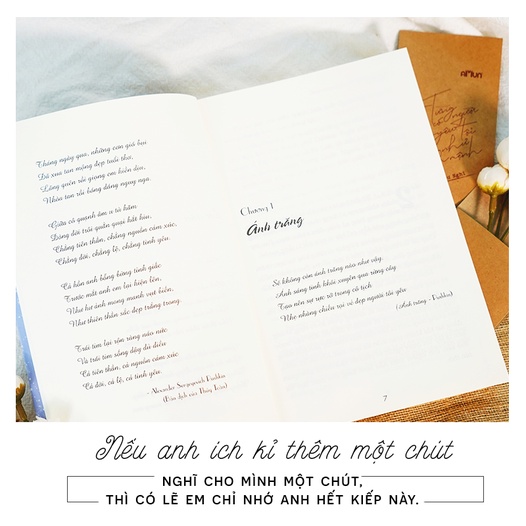 Tháng ngày qua, những cơn gió bụi
Đã xua tan mộng đẹp tuổi thơ,
Lãng quên rồi giọng em hiền dịu,
Nhòa tan rồi bóng dáng nguy nga.
Giữa cô quạnh âm u tù hãm
Dòng đời trôi quằn quại hắt hiu,
Chẳng tiên thần, chẳng nguồn cảm xúc,
Chẳng đời, chẳng lệ, chẳng tình yêu.
Cả hồn anh bỗng bừng tỉnh giấc
Trước mắt anh em lại hiện lên,
Như hư ảnh mong manh vụt biến,
Như thiên thần sắc đẹp trắng trong.
Trái tim lại rộn ràng náo nức
Vì trái tim sống dậy đủ điều
Cả tiên thần, cả nguồn cảm xúc
Cả đời, cả lệ, cả tình yêu.
- Alexander Sergeyevich Pushkin
(Bản dịch của Thúy Toàn)
Chương 1
Ánh trăng
Sẽ không còn ánh trăng nào như vậy.
Ánh sáng tinh khôi xuyên qua rừng cây
Tạo nên sự rực rỡ trong cô tịch
Nhẹ nhàng chiếu rọi vẻ đẹp người tôi yêu
(Ánh trăng - Pushkin)
7
Nếu anh ích kỉ thêm một chút
NGHĨ CHO MÌNH MỘT CHÚT,
THÌ CÓ LẼ EM CHỈ NHỚ ANH HẾT KIẾP NÀY.